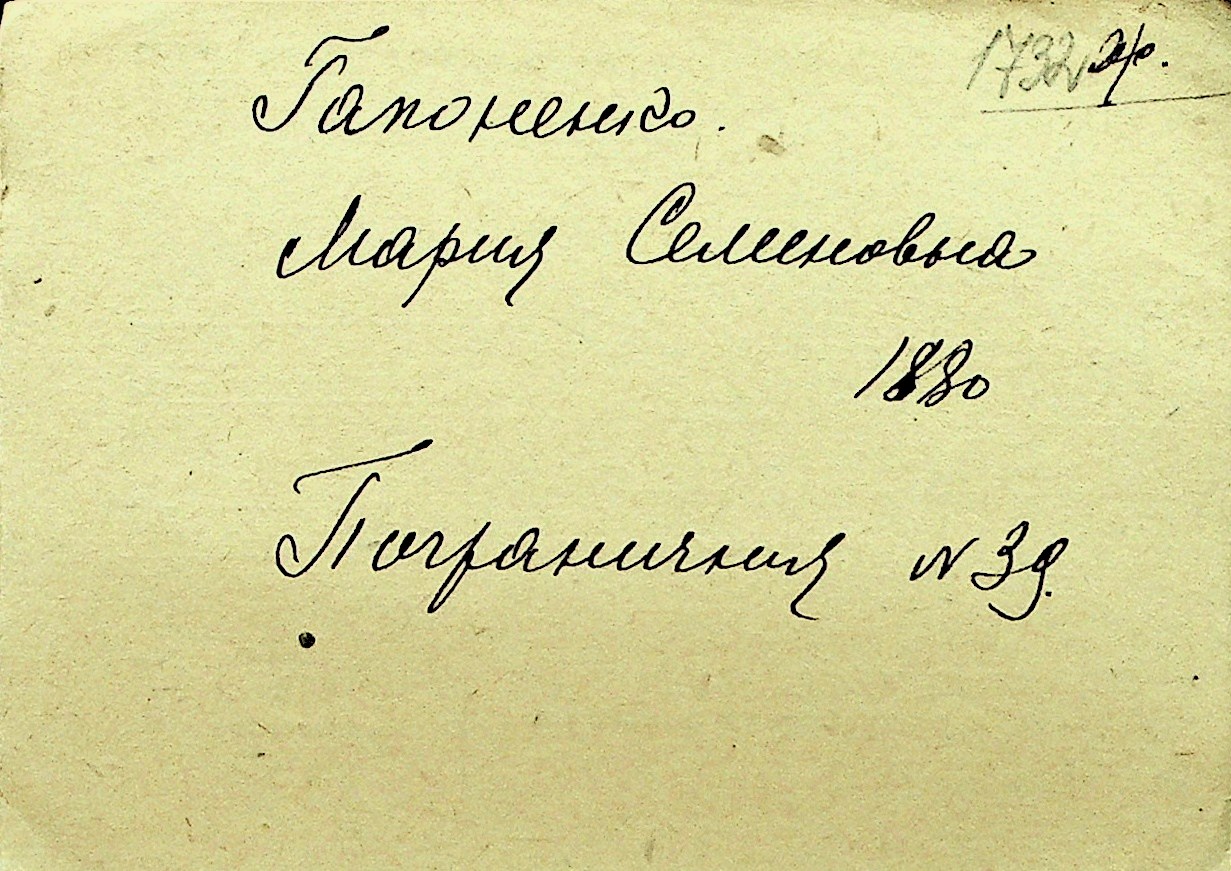 1732
Гапоненко.
Мария Семеновна
1880
Пограничная N 39.